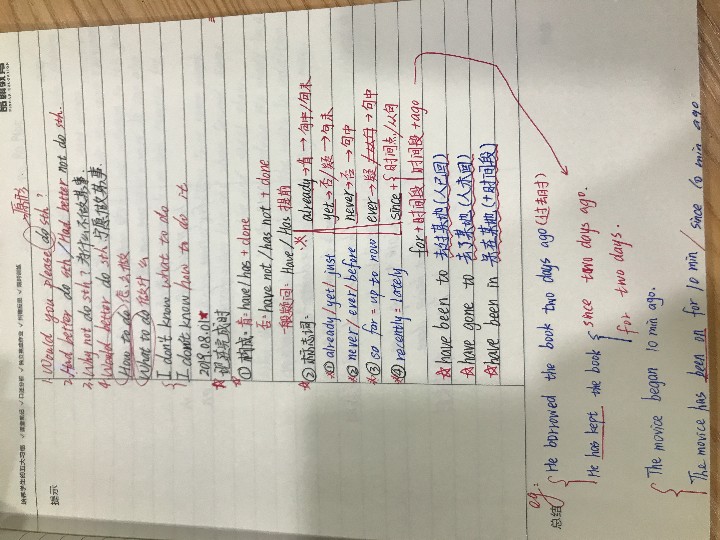 酷学教育
培养学生的五大习惯 ✓课堂笔记 ✓口述分析 ✓独立完成作业 ✓纠错反思 ✓规时训练
提示
原形
1. Would you please do sth?
2. Had better do sth/Had better not do sth.
3. Why not do sth? 为什么不做某事
4. Would better do sth 宁愿做某事.
How to do 怎么做
What to do 做什么
I don't know what to do
I don't know how to do it
2019.08.01★
现在完成时
①构成:肯:have/has + done
否:have not/has not + done
一般疑问:Have/Has 提前
②标志词:
※
already→肯→句中/句末
yet→否/疑→句末
never→否→句中
ever→疑→句中
since+时间点/从句
时间段+ago
for+时间段
① already/yet/just
② never/ever/before
③ so far = up to now
④ recently = lately
☆ have been to 去过某地(人已回)
☆ have gone to 去了某地(人未回)
☆ have been in 去在某地(+时间段)
总结
eg:
He borrowed the book two days ago (过去时)
He has kept the book
since two days ago.
for two days.
The movice began 10 min ago.
The movice has been on for 10 min/since 10 min ago